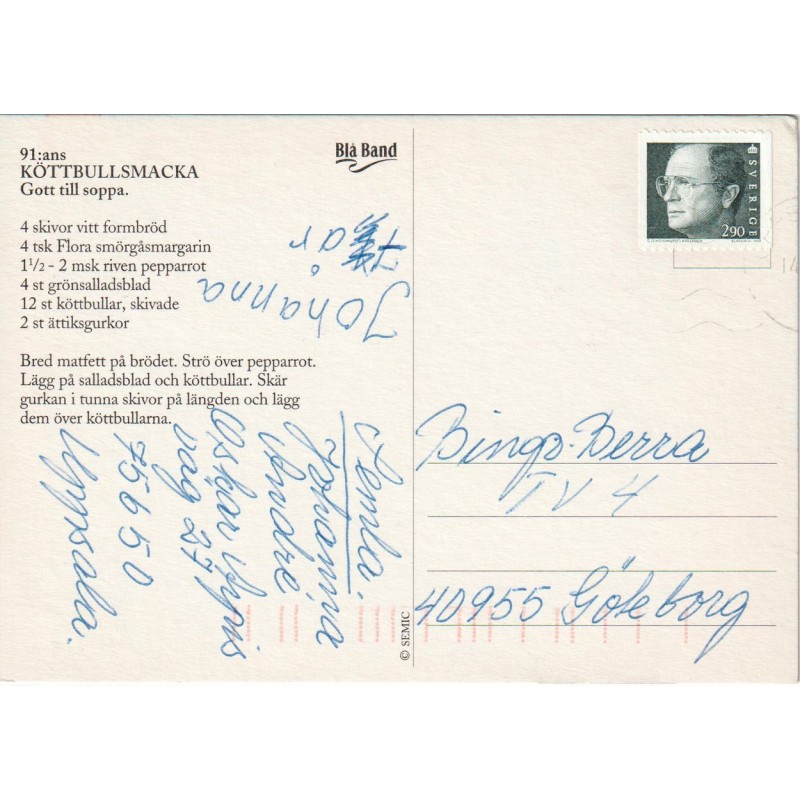 91:ans
KÖTTBULLSMACKA
Gott till soppa.
Blå Band
4 skivor vitt formbröd
4 tsk Flora smörgåsmargarin
1½ - 2 msk riven pepparrot
4 st grönsalladsblad
12 st köttbullar, skivade
2 st ättiksgurkor
Bred matfett på brödet. Strö över pepparrot.
Lägg på salladsblad och köttbullar. Skär
gurkan i tunna skivor på längden och lägg
dem över köttbullarna.
Johanna
år
Semla.
Johanna
André
Oskar
väg 27
75650
Uppsala.
© SEMIC
SVERIGE
290
Bingo-Berra
TV 4
40955 Göteborg